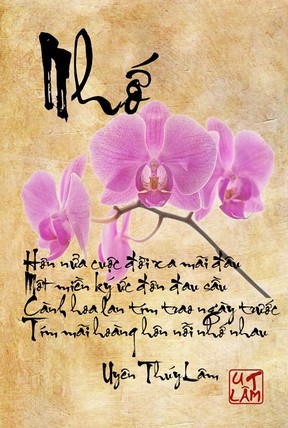 Nhớ
Hơn nửa cuộc đời xa mãi đâu
Một miền ký ức đớn đau cầu
Cành hoa lan tím trao ngày trước
Tím mãi hoàng hôn nỗi nhớ nhau
Uyên Thúy Lâm
UT
LÂM